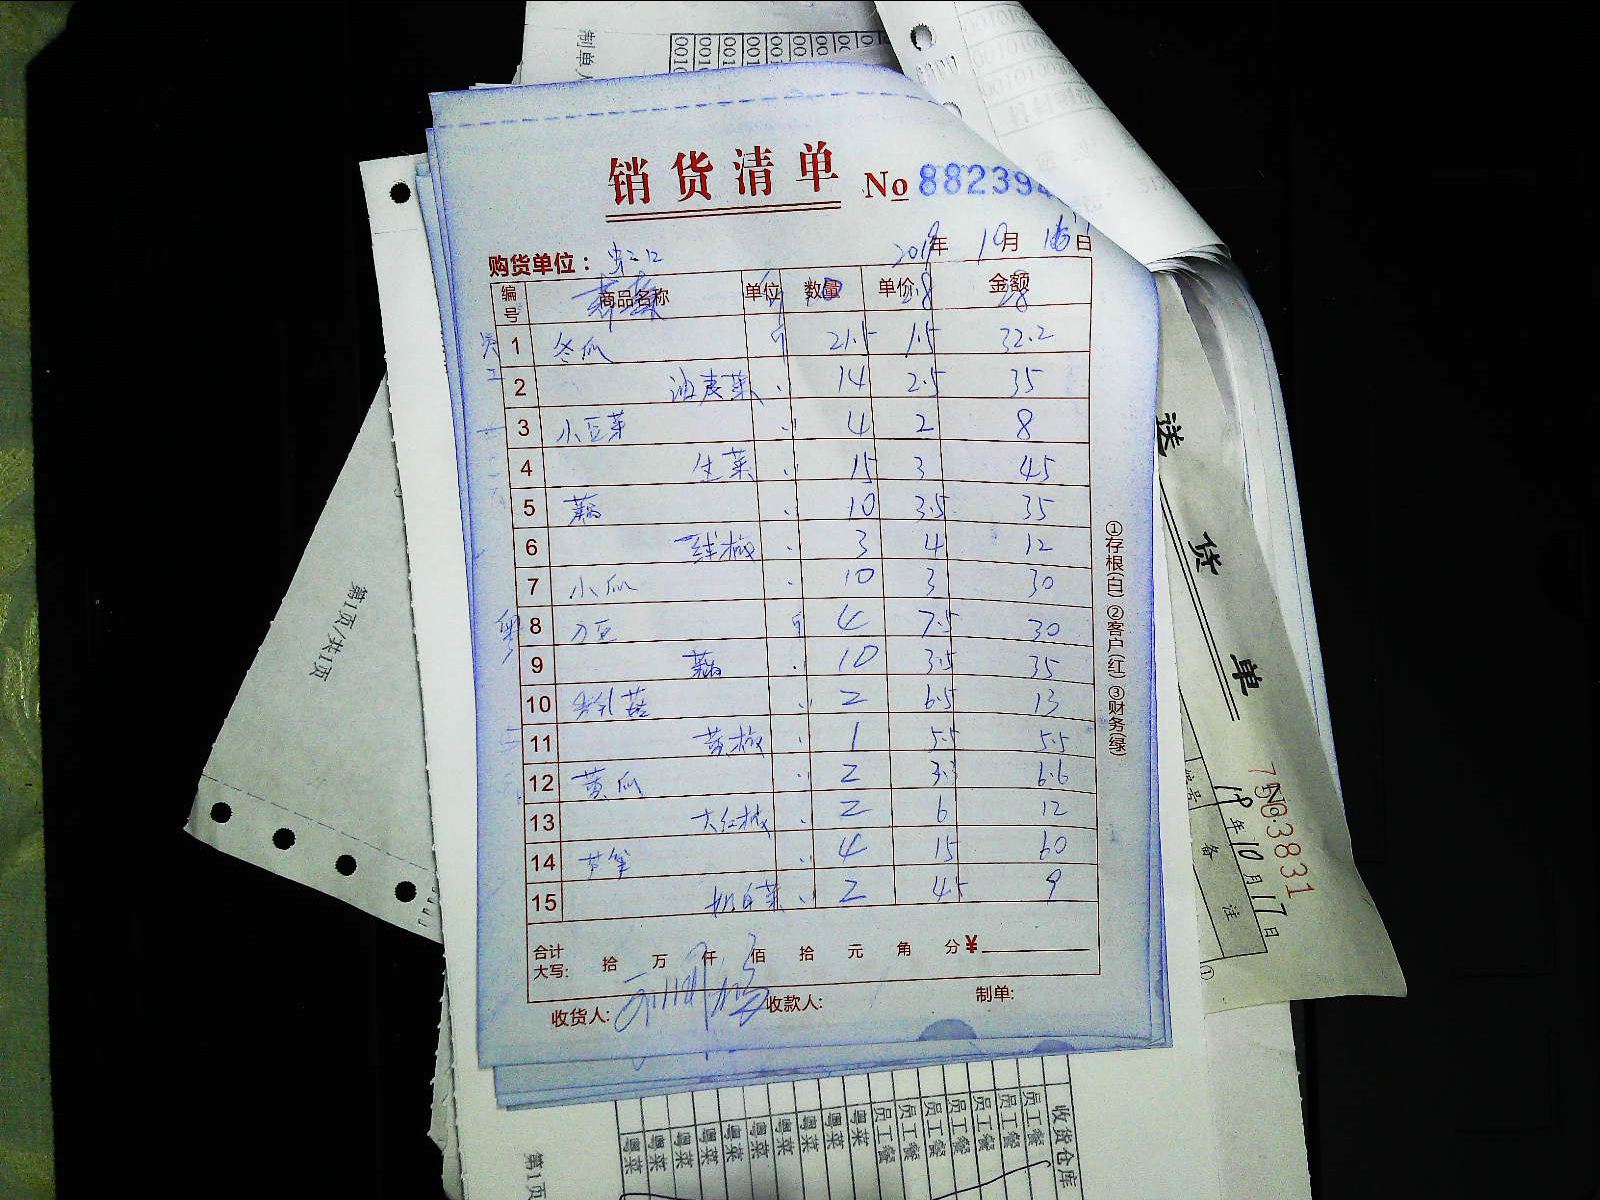 销货清单 No 882394
2019年 10月 16日
购货单位：
编号 商品名称 单位 数量 单价 金额
斤 10 2.8 28
员工
1 冬瓜 斤 21.5 1.5 32.2
2 油麦菜 〃 14 2.5 35
3 小豆芽 〃 4 2 8
4 生菜 〃 15 3 45
5 藕 〃 10 3.5 35
6 线椒 〃 3 4 12
7 小瓜 〃 10 3 30
粤
8 刀豆 斤 4 7.5 30
9 藕 〃 10 3.5 35
10 菇 〃 2 6.5 13
11 黄椒 〃 1 5.5 5.5
12 黄瓜 〃 2 3.3 6.6
13 大红椒 〃 2 6 12
14 芦笋 〃 4 15 60
15 奶白菜 〃 2 4.5 9
合计
大写: 拾 万 仟 佰 拾 元 角 分 ¥
收货人: 收款人: 制单:
①存根(白) ②客户(红) ③财务(绿)
制单人
第1页/共1页
送货单
No.
7503831
19年10月17日
编号
备注
①
收货仓库
员工餐 员工餐 员工餐 员工餐 员工餐 员工餐 员工餐
粤菜 粤菜 粤菜 粤菜 粤菜
粤菜 粤菜 粤菜 粤菜 粤菜 粤菜 粤菜
第1页